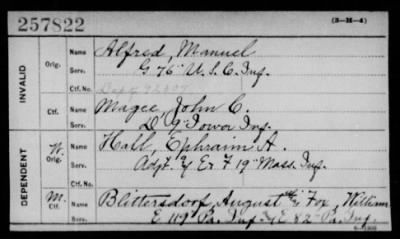 257822 (3-M-4)
INVALID
Orig. Name Alfred, Manuel
Serv. G 76" U.S.C. Inf.
Ctf. No.
Ctf. Name Magee, John C.
Serv. D 9" Iowa Inf.
DEPENDENT
W. Orig. Name Hall, Ephraim A.
Serv. Adjt. & Er. F 19" Mass. Inf.
M. Ctf. Name Blittersdorf, August Fox, William
Serv. E 119" Pa. Inf. & E 82" Pa. Inf.